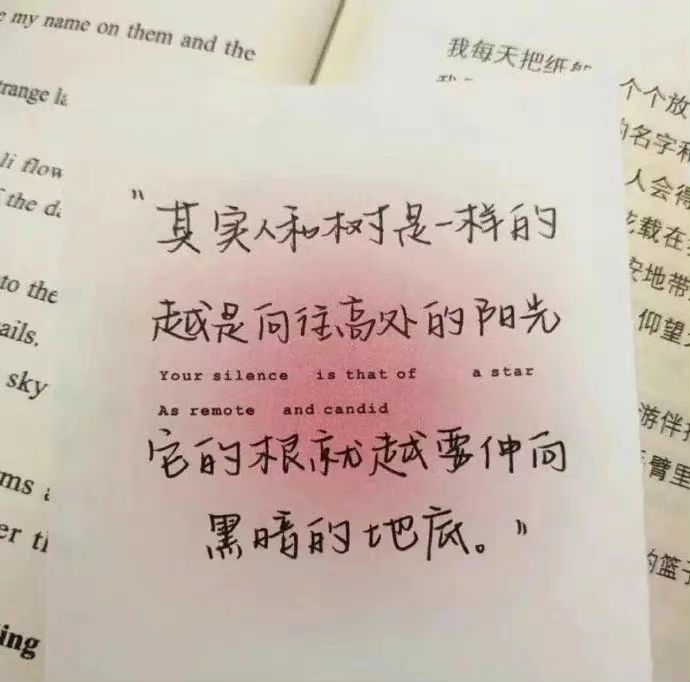 e my name on them and the
trange la
li flow
f the d
to the
ails.
sky
ms a
er th
ing
我每天把纸船
个个放
的名字和
人会得
载在
安地带
仰望
游伴
臂里
的篮子
"其实人和树是一样的
越是向往高处的阳光
Your silence is that of a star
As remote and candid
它的根就越要伸向
黑暗的地底。"